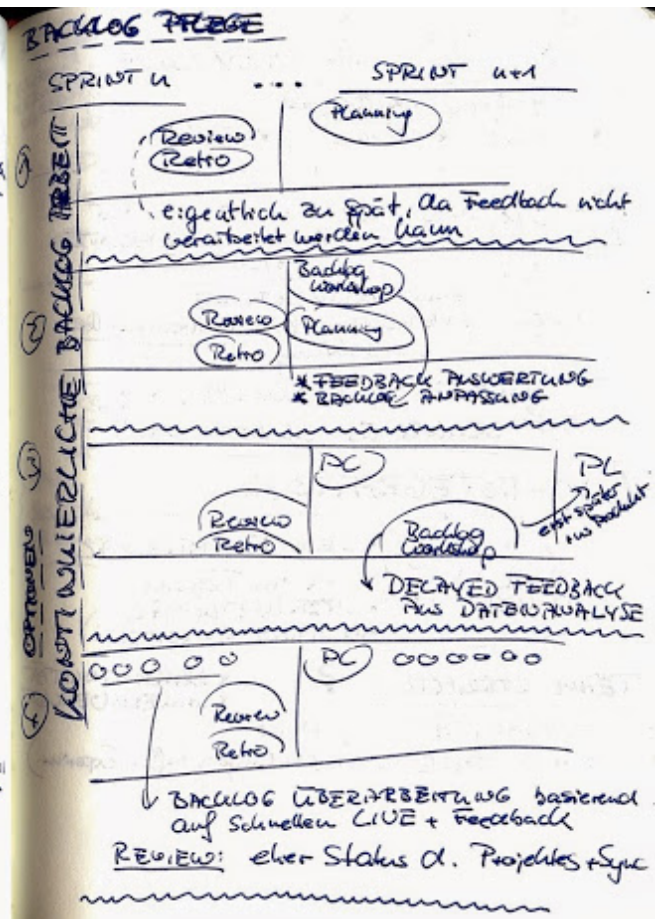 BACKLOG PFLEGE
SPRINT n ... SPRINT n+1
OPTIONEN
KONTINUIERLICHE BACKLOG ARBEIT
1
Planning
Review
Retro
eigentlich zu spät, da Feedback nicht
verarbeitet werden kann
2
Backlog
Workshop
Review Planning
Retro
* FEEDBACK AUSWERTUNG
* BACKLOG ANPASSUNG
3
PL PL
erst später
im Produkt
Review
Retro
Backlog
Workshop
DELAYED FEEDBACK
AUS DATENANALYSE
4
PL
Review
Retro
BACKLOG ÜBERARBEITUNG basierend
auf schnellen LIVE + Feedback
REVIEW: eher Status d. Projektes + Sync